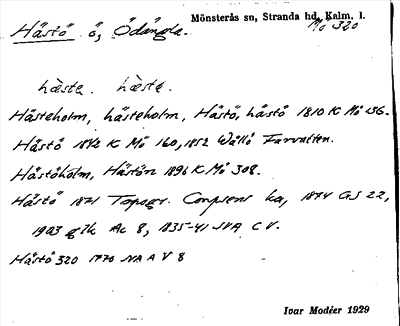 Mönsterås sn, Stranda hd, Kalm. l.
Hästö ö, Ödängla.
Mö 320
hästə. hæstə.
Hästeholm, hästeholm, Hästö, hästö 1810 K Mö 136.
Hästö 1842 K Mö 160, 1852 Wållö Farvatten.
Hästöholm, Hästön 1896 K Mö 308.
Hästö 1871 Topogr. Corpsens ka, 1874 GS 22,
1903 gék Ac 8, 1835-41 SVA C V.
Hästö 320 1770 NA A V 8
Ivar Modéer 1929